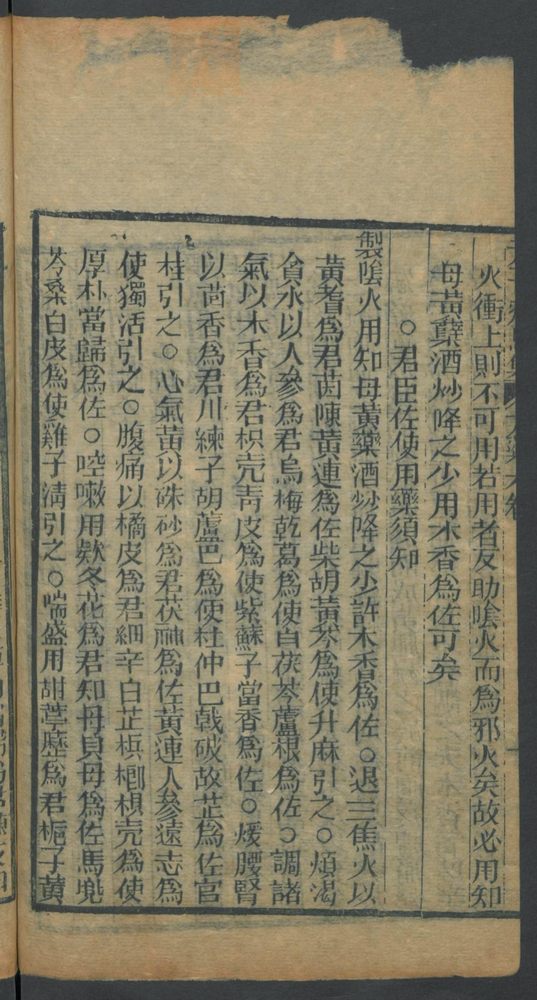 火衝上則不可用若用者反助陰火而爲邪火矣故必用知
母黃蘗酒炒降之少用木香爲佐可矣
○君臣佐使用藥須知
製陰火用知母黃蘗酒炒降之少許木香爲佐○退三焦火以
黃耆爲君茵陳黃連爲佐柴胡黃芩爲使升麻引之○煩渴
貪水以人參爲君烏梅乾葛爲使白茯苓蘆根爲佐○調諸
氣以木香爲君枳壳青皮爲使紫蘇子當香爲佐○煖腰腎
以茴香爲君川練子胡蘆巴爲使杜仲巴戟破故芷爲佐官
桂引之○心氣黃以硃砂爲君茯神爲佐黃連人參遠志爲
使獨活引之○腹痛以橘皮爲君細辛白芷梹榔枳壳爲使
厚朴當歸爲佐○咳嗽用欵冬花爲君知母貝母爲佐馬兠
苓桑白皮爲使雞子清引之○喘盛用甜葶藶爲君梔子黃